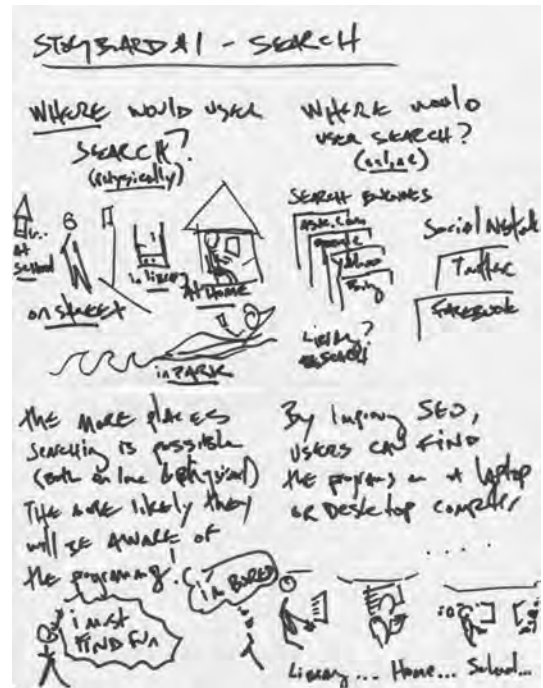 STORYBOARD #1 - SEARCH
WHERE WOULD USER
SEARCH?
(physically)
at
School
on STREET
in library
At Home
in PARK
WHERE would
USER SEARCH?
(online)
SEARCH ENGINES
ask.com
google
yahoo
Bing
Library?
Search
Social Network
Twitter
Facebook
the more places
Searching is possible
(both online & physical)
The more likely they
will be AWARE OF
the programming!
i must
FIND FUN
i'm BORED
By Improving SEO,
USERS CAN FIND
the programs on A laptop
or Desktop computer
. . . .
Library... Home... School...